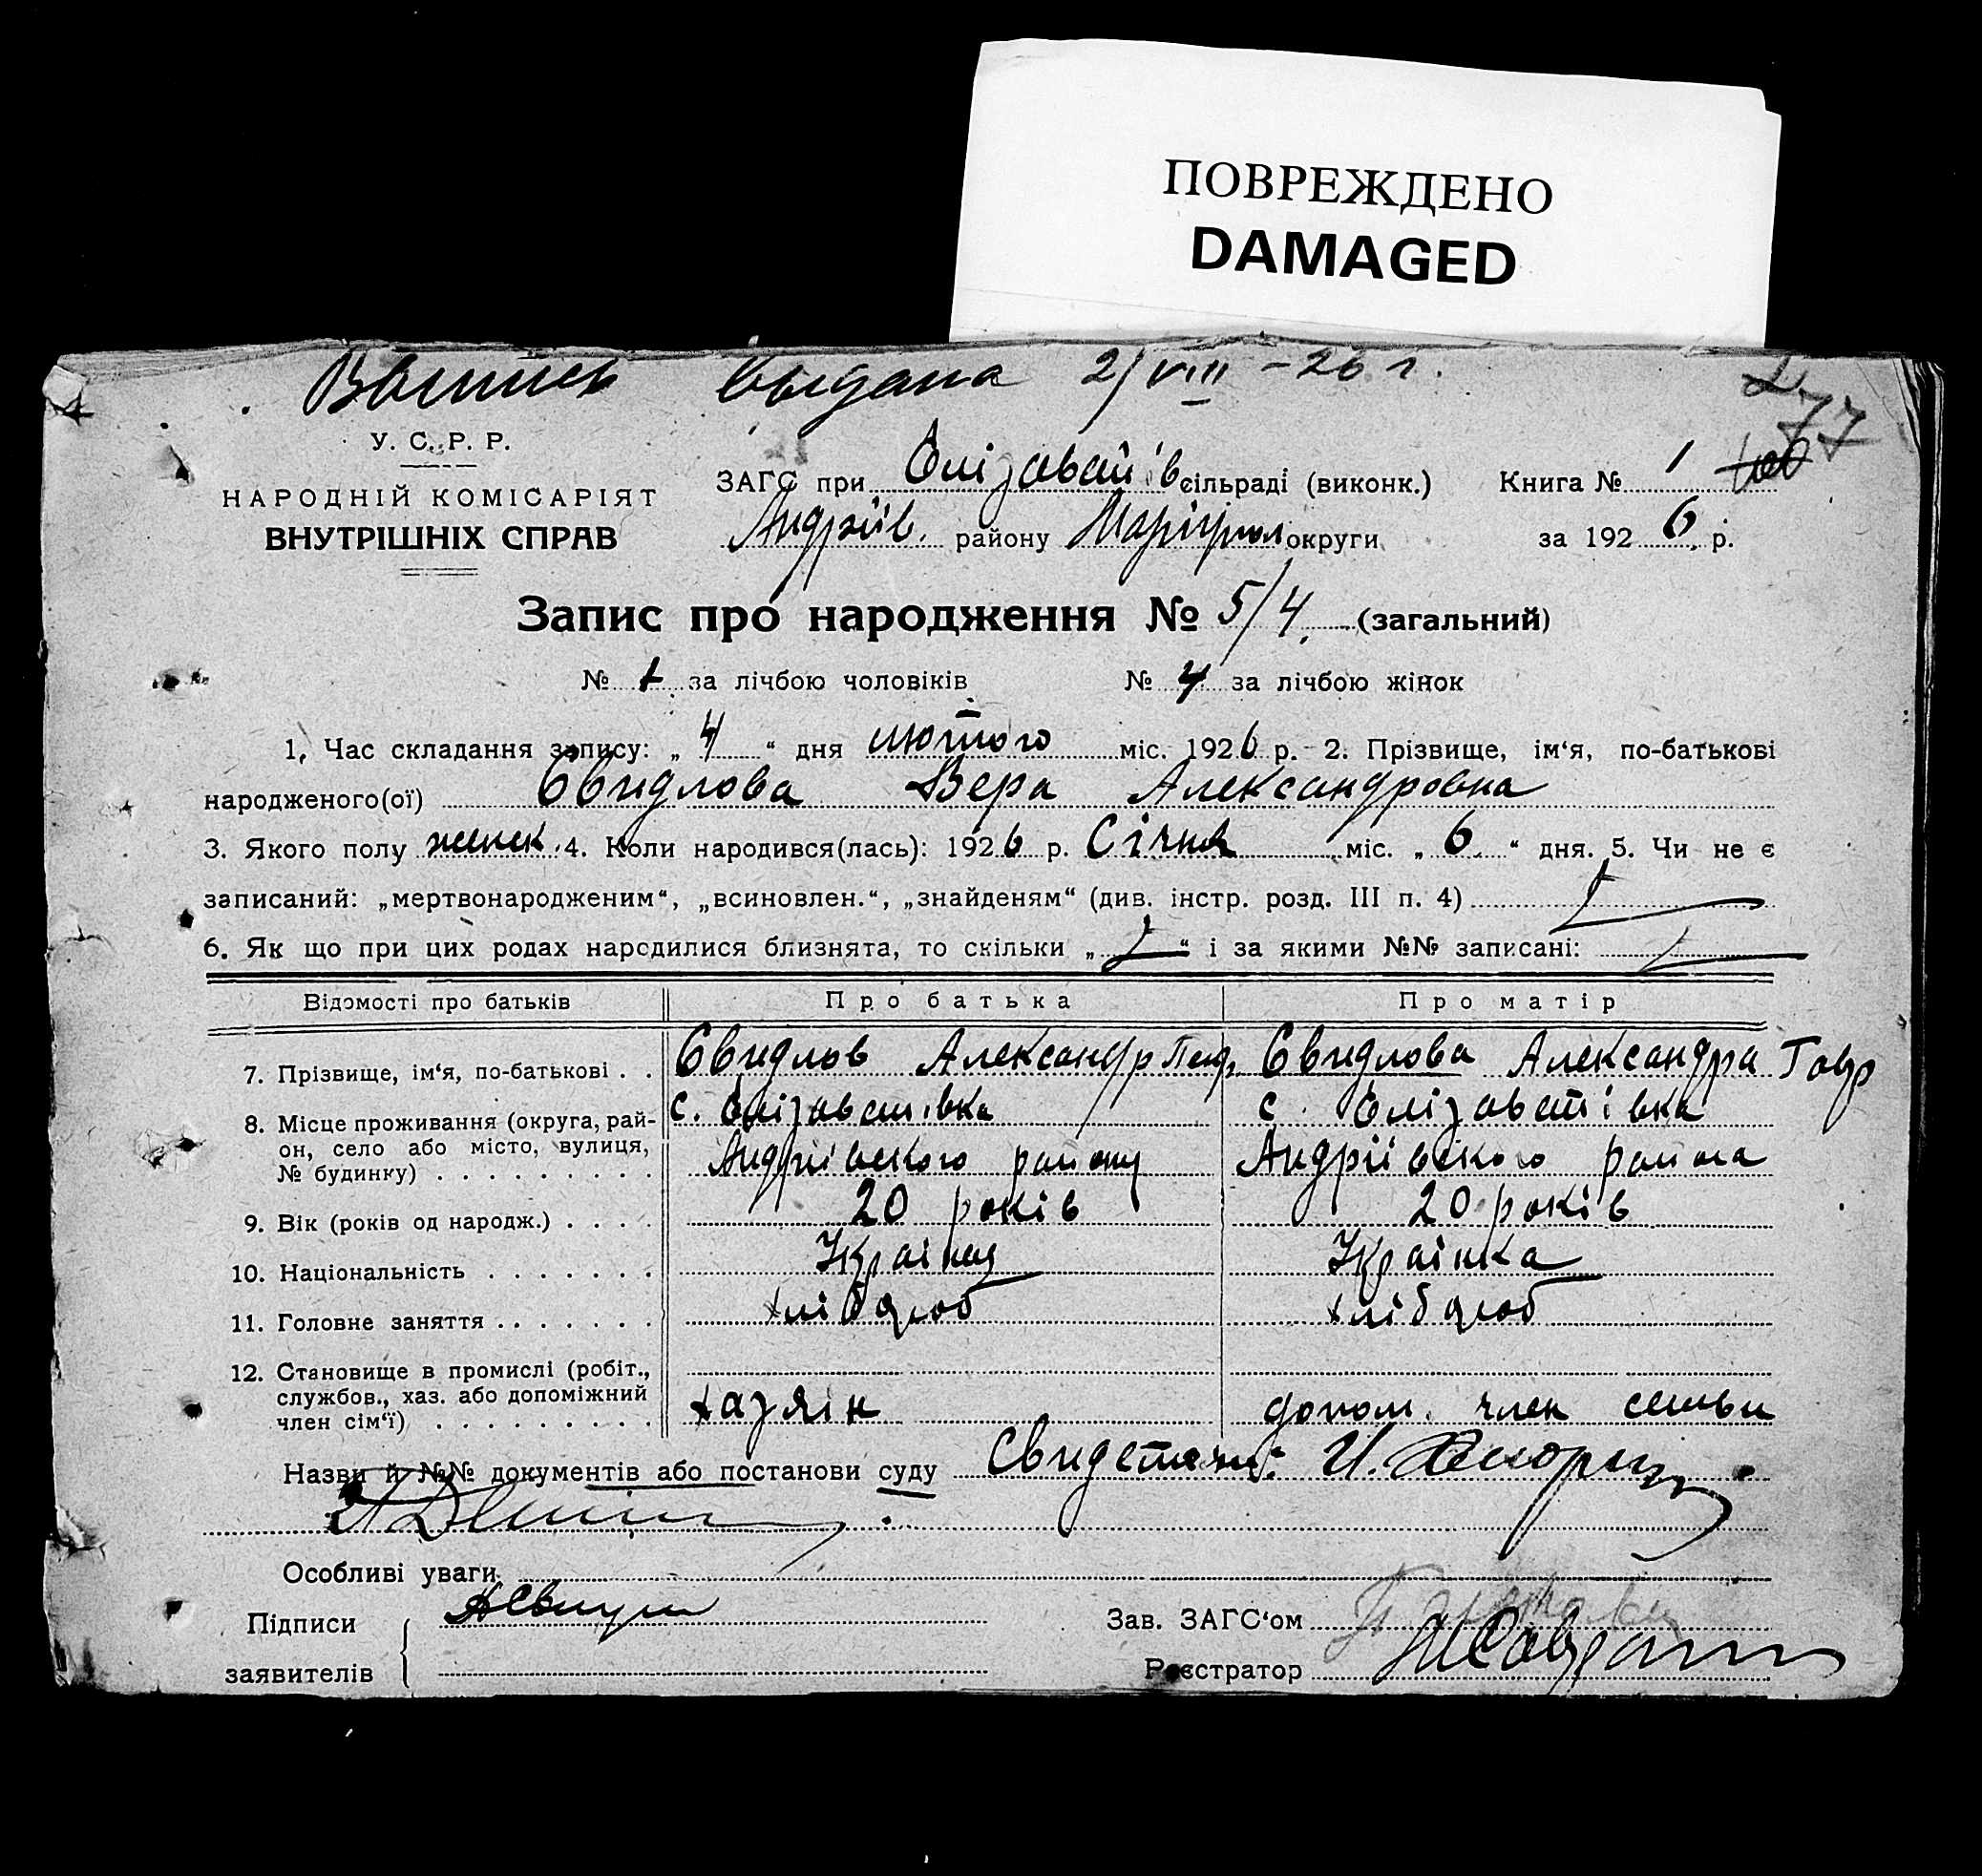 ПОВРЕЖДЕНО
DAMAGED
Выпись выдана 2/VIII - 26 г.
77
У. С. Р. Р.
НАРОДНІЙ КОМІСАРІЯТ
ВНУТРІШНІХ СПРАВ
ЗАГС при Єлізаветів сільраді (виконк.) Книга № 1
Андріїв. району Маріупол округи за 1926 р.
Запис про народження № 5/4. (загальний)
№ 1 за лічбою чоловіків № 4 за лічбою жінок
1. Час складання запису: „4“ дня лютого міс. 1926 р. 2. Прізвище, ім‘я, по-батькові
народженого(ої) Свидлова Вера Александровна
3. Якого полу женск 4. Коли народився(лась): 1926 р. Січня міс. „6“ дня. 5. Чи не є
записаний: „мертвонародженим“, „всиновлен.“, „знайденям“ (див. інстр. розд. III п. 4)
6. Як що при цих родах народилися близнята, то скільки „ “ і за якими №№ записані:
Відомості про батьків Про батька Про матір
7. Прізвище, ім‘я, по-батькові . . Свидлов Александр Свидлова Александра Гавр
8. Місце проживання (округа, рай- с. Єлізаветівка с. Єлізаветівка
он, село або місто, вулиця, Андріївского району Андріївского района
№ будинку) . . . . . . . . .
9. Вік (років од народж.) . . . . 20 років 20 років
10. Національність . . . . . . . Українц Українка
11. Головне заняття . . . . . . . хлібороб хлібороб
12. Становище в промислі (робіт.,
службов., хаз. або допоміжний хазяїн допом. член семьи
член сім‘ї) . . . . . . . . .
Назви й №№ документів або постанови суду Свидетели: И.
Особливі уваги
Підписи Зав. ЗАГС‘ом
заявителів Реєстратор